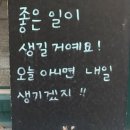 좋은 일이
생길 거예요!
오늘 아니면 내일
생기겠지!!